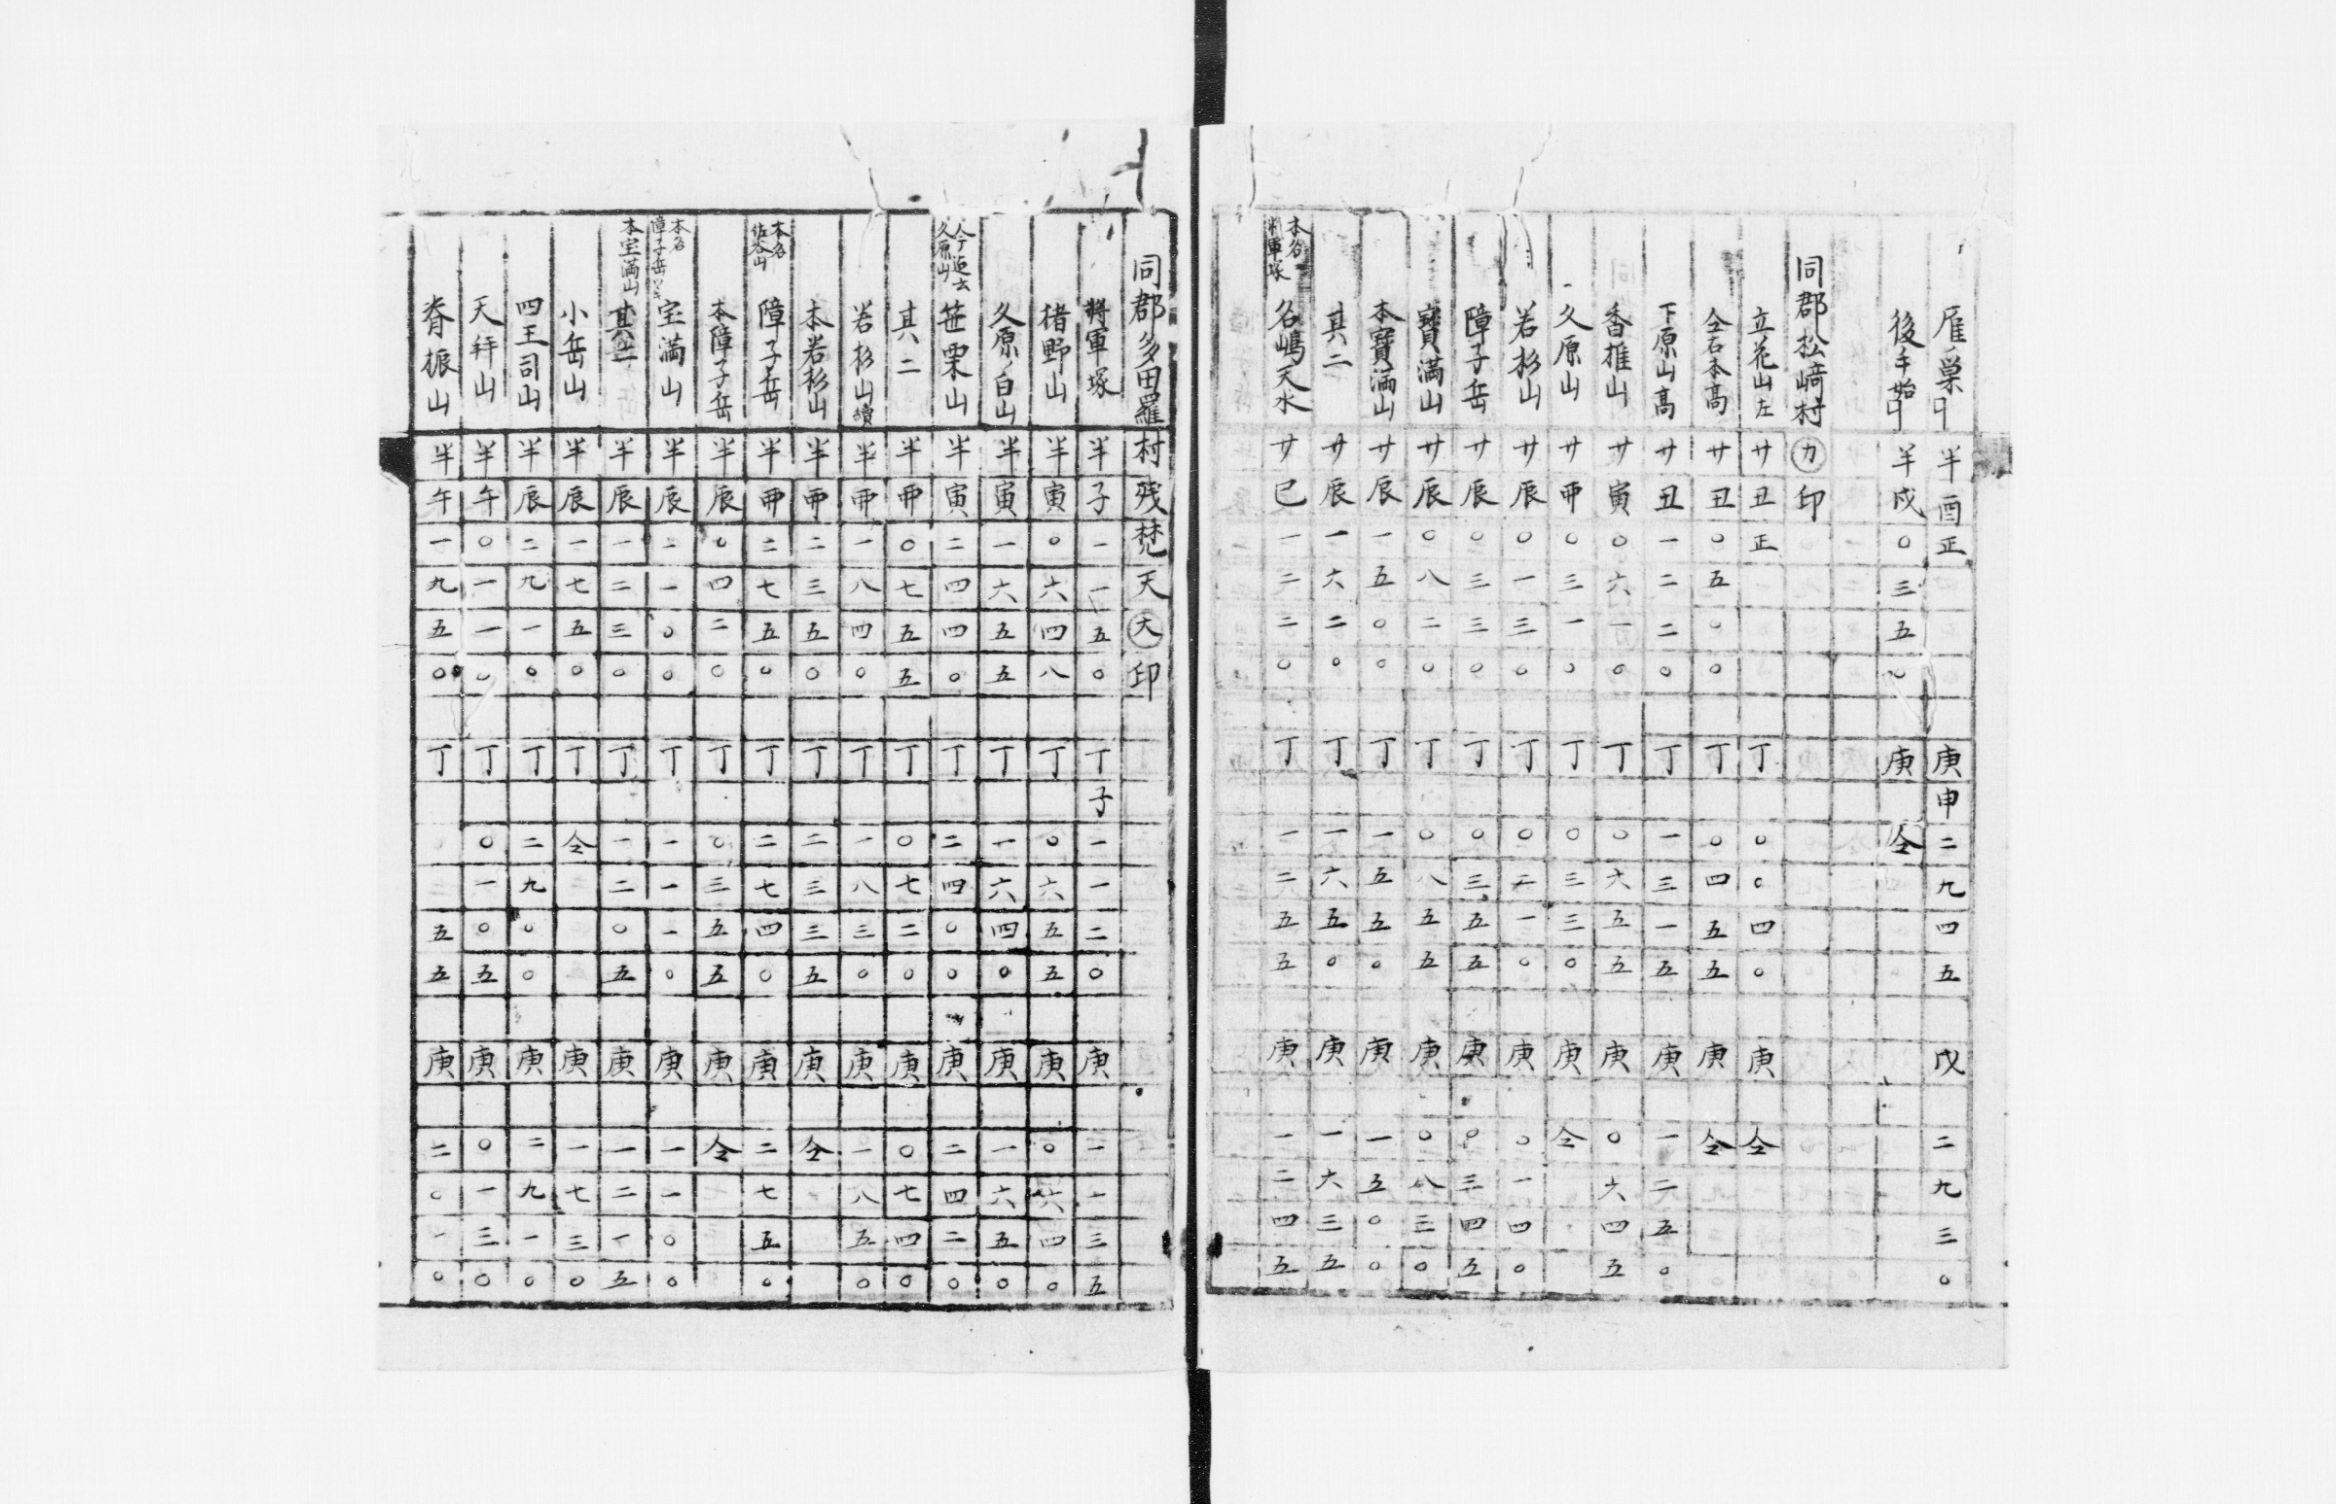 雁巣卩 半酉正 庚申二九四五 戊 二九三〇
後手始卩 半戌〇三五〇 庚 仝
同郡松﨑村 カ 印
立花山左 廿丑正 丁 〇〇四〇 庚 仝
仝右本高 廿丑〇五〇〇 丁 〇四五五 庚 仝
下原山高 廿丑一二二〇 丁 一三一五 庚 一二五〇
香推山 廿寅〇六一〇 丁 〇六五五 庚 〇六四五
久原山 廿卯〇三一〇 丁 〇三三〇 庚 仝
若杉山 廿辰〇一三〇 丁 〇二一〇 庚 〇一四〇
障子岳 廿辰〇三三〇 丁 〇三五五 庚 〇三四五
寳満山 廿辰〇八二〇 丁 〇八五五 庚 〇八三〇
本寳満山 廿辰一五〇〇 丁 一五五〇 庚 一五〇〇
其二 廿辰一六二〇 丁 一六五〇 庚 一六三五
本名将軍塚 名嶋天水 廿巳一二三〇 丁 一二五五 庚 一二四五
同郡多田羅村残梵天 天 印
将軍塚 半子一一五〇 丁子一一二〇 庚 一一三五
楮野山 半寅〇六四八 丁 〇六五五 庚 〇六四〇
久原ノ白山 半寅一六五五 丁 一六四〇 庚 一六五〇
今迠去久原山 笹栗山 半寅二四四〇 丁 二四〇〇 庚 二四二〇
其二 半卯〇七五五 丁 〇七二〇 庚 〇七四〇
若杉山續 半卯一八四〇 丁 一八三〇 庚 一八五〇
本若杉山 半卯二三五〇 丁 二三三五 庚 仝
本名佐谷山 障子岳 半卯二七五〇 丁 二七四〇 庚 二七五〇
本障子岳 半辰〇四二〇 丁 〇三五五 庚 仝
本名障子岳 宝満山 半辰一一〇〇 丁 一一一〇 庚 一一〇〇
本宝満山 其二 半辰一二三〇 丁 一二〇五 庚 一二一五
小岳山 半辰一七五〇 丁 仝 庚 一七三〇
四王司山 半辰二九一〇 丁 二九〇〇 庚 二九一〇
天拜山 半午〇一一〇 丁 〇一〇五 庚 〇一三〇
脊振山 半午一九五〇 丁 五五 庚 二〇一〇